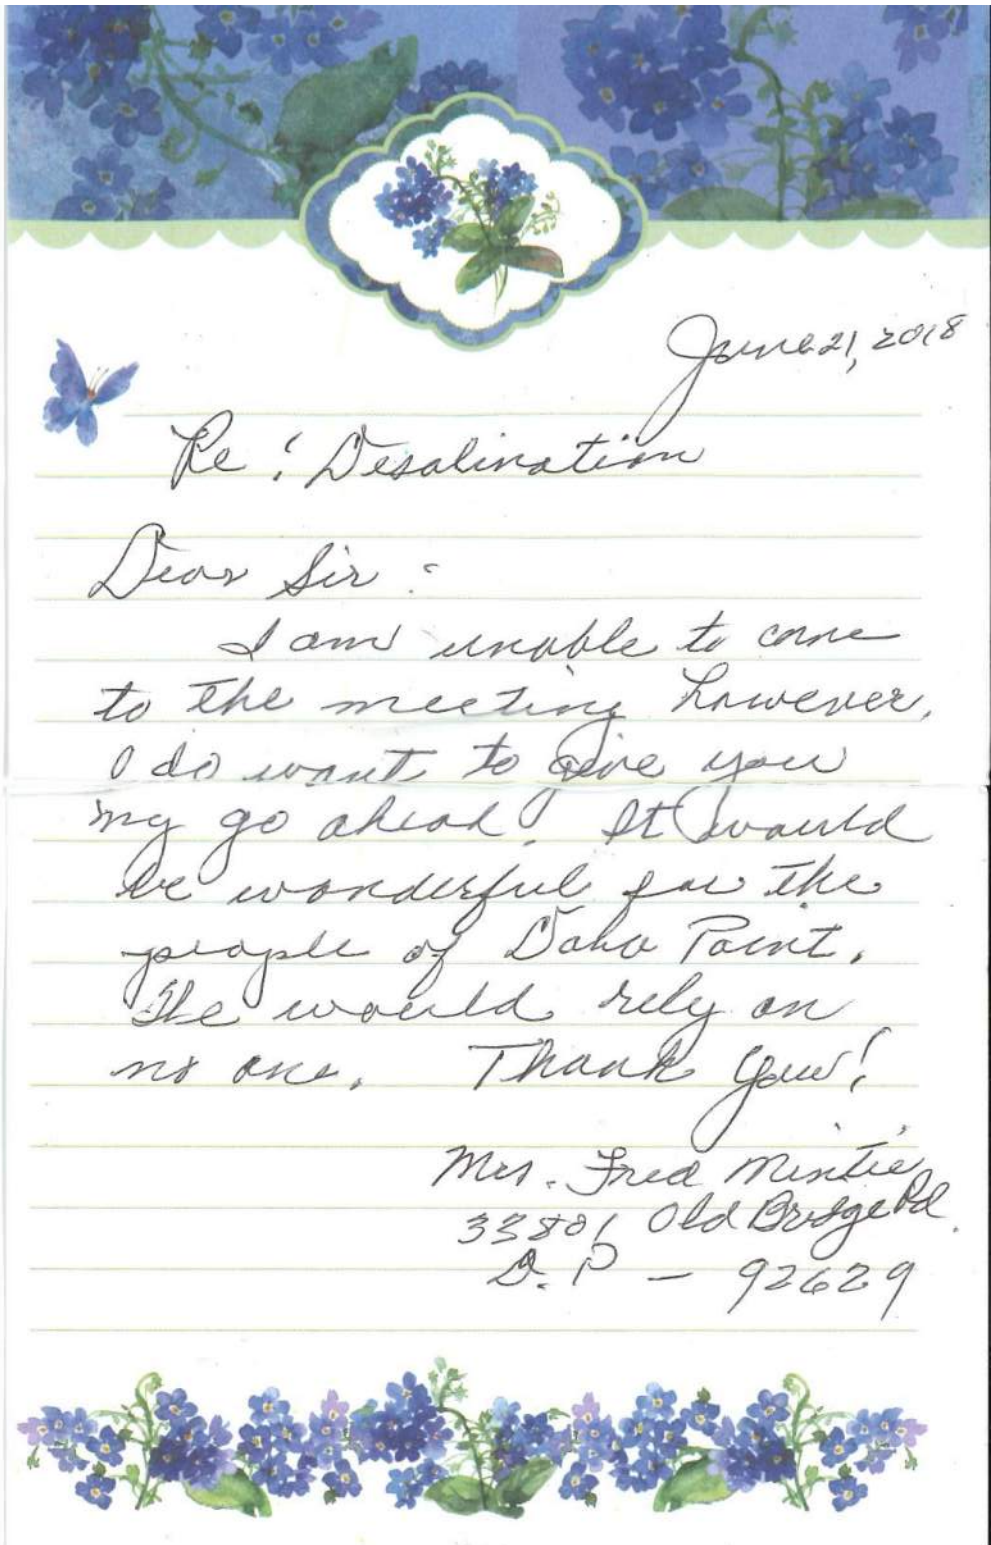 June 21, 2018
Re: Desalination
Dear Sir:
I am unable to come
to the meeting however,
I do want to give you
my go ahead. It would
be wonderful for the
people of Dana Point.
We would rely on
no one. Thank you!
Mrs. Fred Mintie
33801 Old Bridge Rd.
D.P - 92629